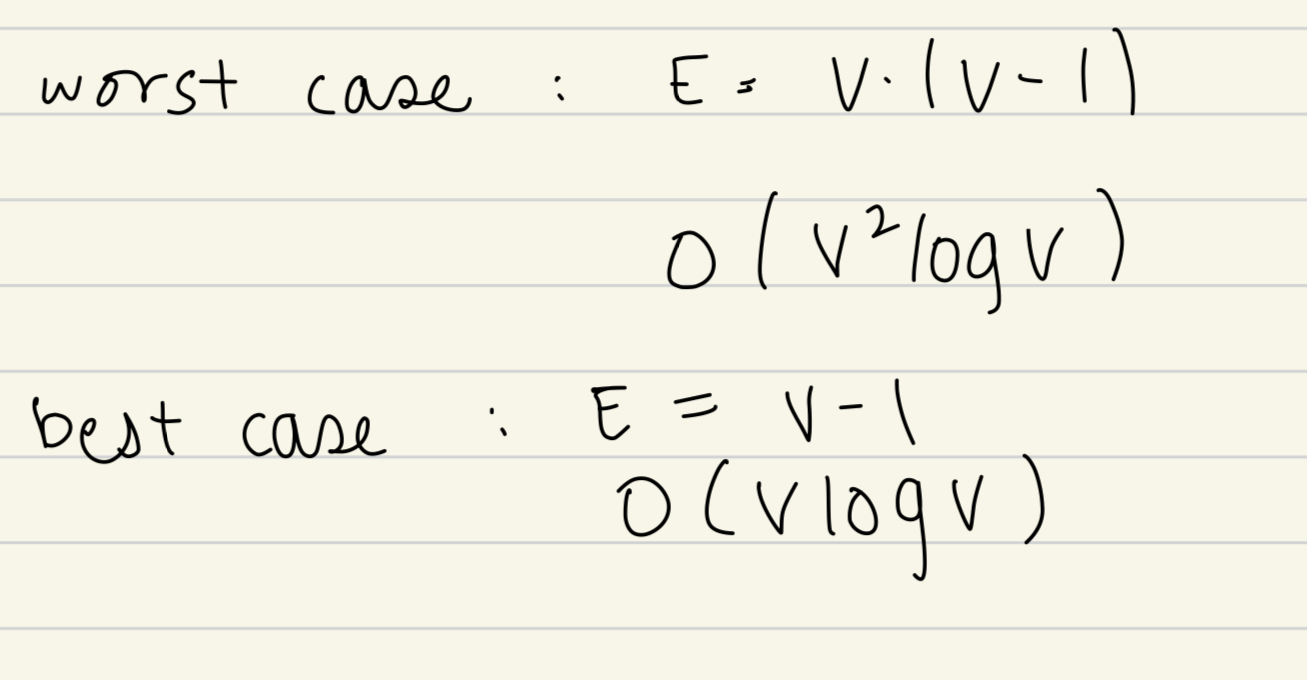 worst case : E = V·(V-1)
O(V²logV)
best case : E = V-1
O(VlogV)